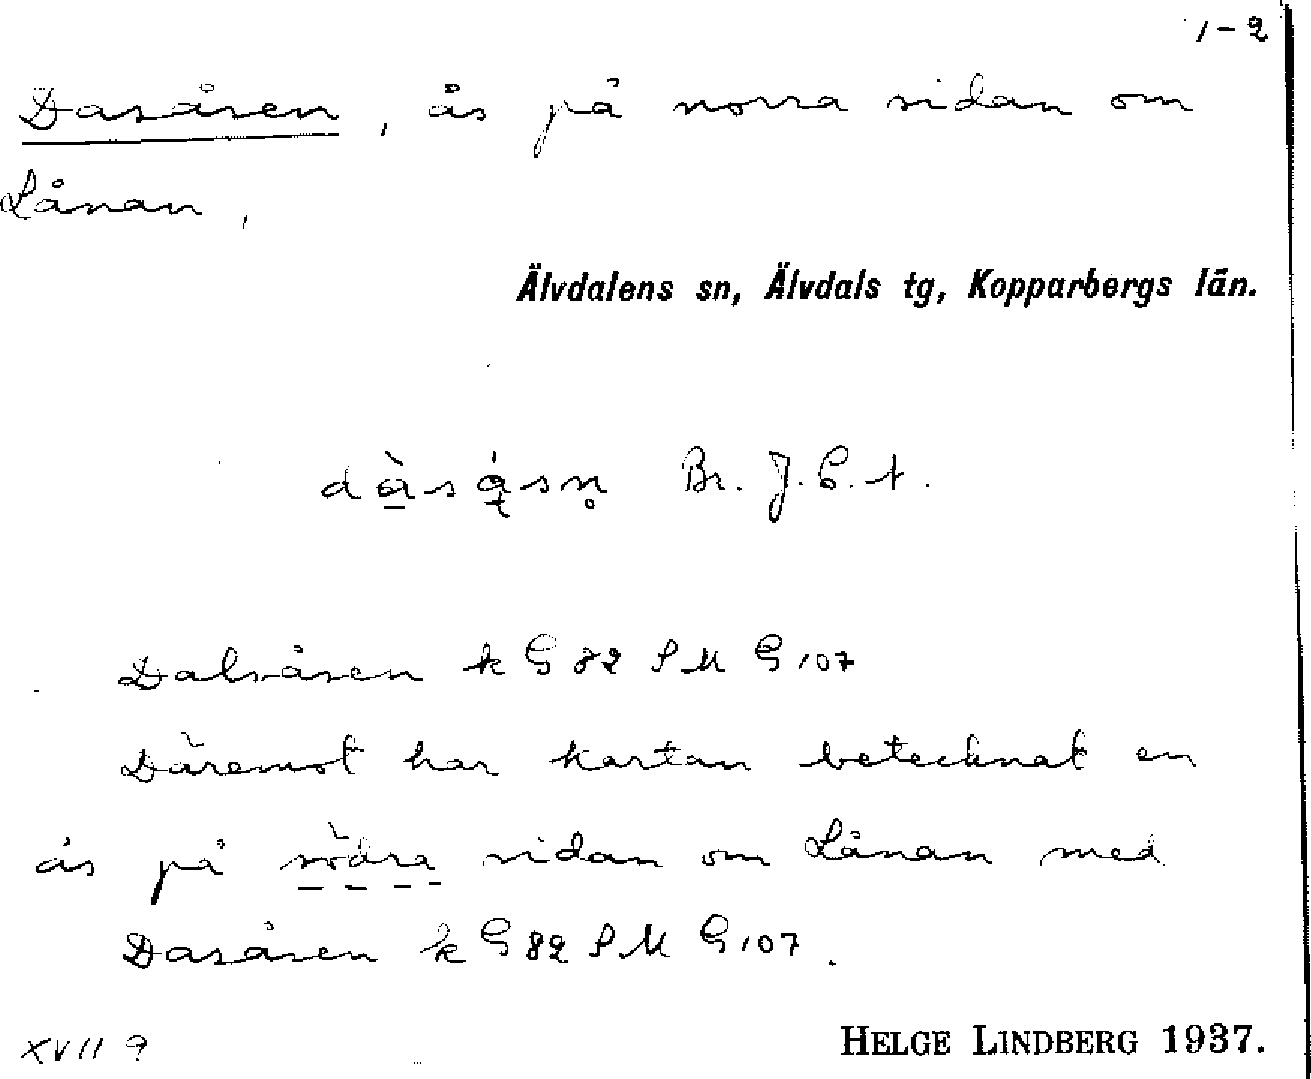 1-2
Dasåsen, ås på norra sidan om
Lånan,
Älvdalens sn, Älvdals tg, Kopparbergs län.
dàsåsn̥ Br. J. E. A.
Dalsåsen k G 82 S M G 107
Däremot har kartan betecknat en
ås på södra sidan om Lånan med
Dasåsen k G 82 S M G 107.
XVII 9
HELGE LINDBERG 1937.